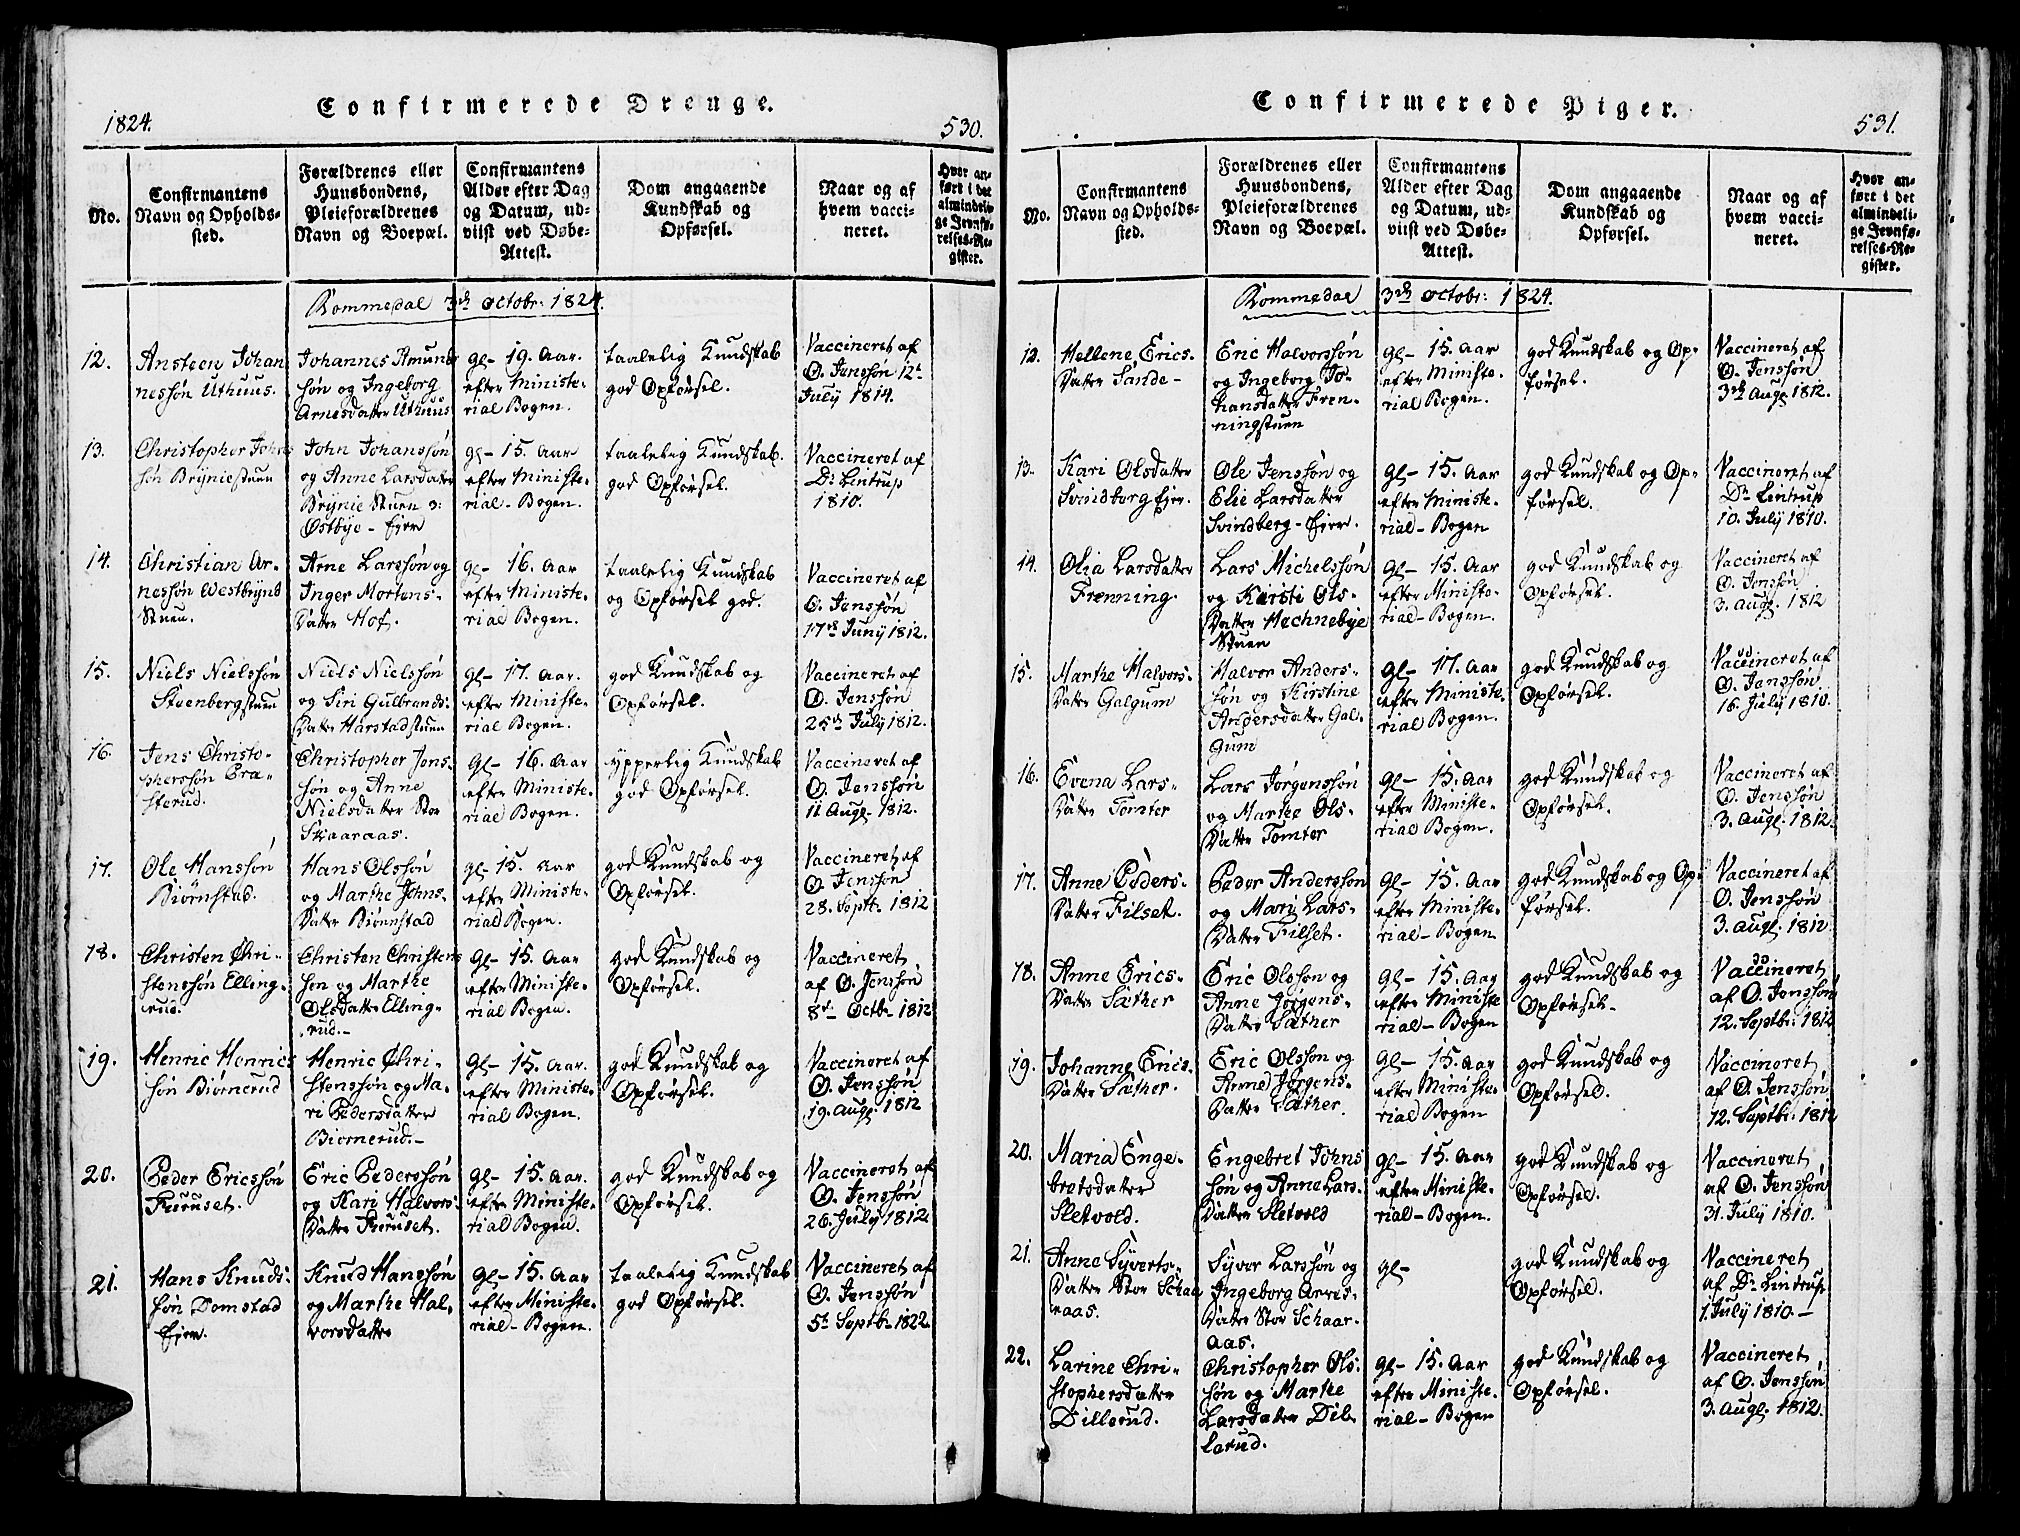 1824.
Confirmerede Drenge.
530.
No.
Confirmantens
Navn og Opholds-
sted.
Forældrenes eller
Huusbondens,
Pleieforældrenes
Navn og Boepæl.
Confirmantens
Alder efter Dag
og Datum, ud-
viist ved Døbe-
Attest.
Dom angaaende
Kundskab og
Opførsel.
Naar og af
hvem vacci-
neret.
Hvor an-
ført i det
almindeli-
ge Jevnfø-
relses-Re-
gister.
Rommedal 3de Octobr: 1824.
12.
Ansteen Johan
nessøn Uthuus.
Johannes Amunds
søn og Ingeborg
Arnesdatter Uthuus
Gl- 19. Aar.
efter Ministe-
rial Bogen.
taalelig Kundskab
god Opførsel.
Vaccineret af
O. Jenssøn 12t
July 1814.
13.
Christopher Johns
søn Brÿniestuen
John Johanssøn
og Anne Larsdatter
Brÿnie Stuen
Østbÿe - Ejer
Gl- 15. Aar
efter Ministe-
rial- Bogen.
taalelig Kundskab.
god Opførsel.
Vaccineret af
Dr Lintrup
1810.
14.
Christian Ar-
nessøn Westbÿnd
Stuen.
Arne Larssøn og
Inger Mortens-
Datter Hof.
Gl- 16. Aar
efter Ministe-
rial Bogen.
taalelig Kundskab
og Opførsel god.
Vaccineret af
O. Jenssøn
17de Junÿ 1812.
15.
Niels Nielssøn
Steenbergstuen
Niels Nielssøn
og Siri Gulbrands-
Datter Harstadstuen
Gl- 17. Aar.
efter Ministe-
rial Bogen.
god Kundskab og
Opførsel.
Vaccineret af
O. Jenssøn
25de Julÿ 1812.
16.
Jens Christo-
pherssøn Bra-
sterud.
Christopher Jens-
søn og Anne
Nielsdatter Stor
Skaaraas.
Gl- 16. Aar
efter Ministe-
rial Bogen.
ypperlig Kundskab
god Opførsel.
Vaccineret af
O. Jenssøn
11 Augt- 1812.
17.
Ole Hanssøn
Biørnstad.
Hans Olssøn
og Marthe Johns-
Datter Biørnstad
Gl- 15. Aar
efter Ministe-
rial Bogen.
god Kundskab og
Opførsel.
Vaccineret af
O. Jenssøn
28. Septb- 1812
18.
Christen Chri-
stenssøn Elling-
rud.
Christen Christens
søn og Marthe
Olsdatter Elling-
rud.-
Gl- 15. Aar
efter Ministe-
rial Bogen.
god Kundskab og
Opførsel.
Vaccineret
af O. Jenssøn
8d- Octb- 1812
19.
Henric Henrics
søn Biørnerud
Henric Chri-
stenssøn og Ma-
ri Pedersdatter
Biørnerud.-
Gl- 15. Aar.
efter Ministe-
rial Bogen.
god Kundskab og
Opførsel.
Vaccineret af
O. Jenssøn
19. Augt 1812
20.
Peder Ericssøn
Furuset.
Eric Pederssøn
og Kari Halvors-
Datter Furuset.
Gl- 15. Aar.
efter Ministe-
rial Bogen.
god Kundskab og
Opførsel.
Vaccineret af
O. Jenssøn
26. Julÿ 1812
21.
Hans Knuds-
søn Domstad
Ejer.
Knud Hanssøn
og Marthe Hal-
vorsdatter
Gl- 15. Aar
efter Ministe-
rial- Bogen.
taalelig Kundskab
god Opførsel.
Vaccineret af
O. Jenssøn
5t Septb- 1822
Confirmerede Piger.
531.
No.
Confirmantens
Navn og Opholds-
sted.
Forældrenes eller
Huusbondens,
Pleieforældrenes
Navn og Boepæl.
Confirmantens
Alder efter Dag
og Datum, ud-
viist ved Døbe-
Attest.
Dom angaaende
Kundskab og
Opførsel.
Naar og af
hvem vacci-
neret.
Hvor an-
ført i det
almindeli-
ge Jevnfø-
relses-Re-
gister.
Rommedal 3de Octobr: 1824.
12.
Hellene Erics-
Datter Sande-
Eric Halvorssøn
og Ingeborg Jo-
hansdatter Fren-
ningstuen
Gl- 15. Aar
efter Ministe-
rial Bogen.
god Kundskab og Op-
førsel.
Vaccineret af
O. Jenssøn
3de Augt 1812.
13.
Kari Olsdatter
Svindborg Ejer.
Ole Jenssøn og
Elie Larsdatter
Svindberg- Ejer.
Gl- 15. Aar
efter Ministe-
rial- Bogen
god Kundskab og Op-
førsel.
Vaccineret af
Dr Lintrup
10. Julÿ 1810.
14.
Olia Larsdatter
Frenning.
Lars Michelssøn
og Kirsti Ols-
Datter Hechnebÿe
Stuen
Gl- 15. Aar
efter Ministe-
rial- Bogen.
god Kundskab og
Opførsel.
Vaccineret af
O. Jenssøn
3. Augt. 1812
15.
Marthe Halvors-
Datter Galgum
Halvor Anders-
søn og Kirstine
Andersdatter Gal-
gum
Gl- 17. Aar
efter Ministe-
rial Bogen.
god Kundskab og
Opførsel.
Vaccineret af
O. Jenssøn
16. Julÿ 1810.
16.
Evena Lars-
Datter Tomter
Lars Jørgenssøn
og Marthe Ols-
Datter Tomter
Gl- 15. Aar
efter Ministe-
rial Bogen.
god Kundskab og
Opførsel.
Vaccineret af
O. Jenssøn
3. Augt. 1812.
17.
Anne Peders-
Datter Filset.
Peder Anderssøn
og Mari Lars-
Datter Filset.
Gl- 15. Aar
efter Ministe-
rial- Bogen
god Kundskab og Op-
førsel.
Vaccineret af
O. Jenssøn
3. Augt. 1812
18.
Anne Erics-
Datter Sæther
Eric Olsson og
Anne Jørgens-
Datter Sæther
Gl- 15. Aar
efter Ministe
rial- Bogen
god Kundskab og
Opførsel-
Vaccineret
af O. Jenssøn
12. Septbr 1812
19.
Johanne Erics-
Datter Sæther.
Eric Olsson og
Anne Jørgens-
Datter Sæther.
Gl- 15. Aar
efter Ministe-
rial Bogen
god Kundskab og
Opførsel.
Vaccineret
af O. Jenssøn
12. Septbr 1812
20.
Maria Enge-
bretsdatter
Sletvold.
Engebret Johns
søn og Anne Lars-
Datter Sletvold
Gl- 15. Aar
efter Ministe-
rial- Bogen.
god Kundskab og
Opførsel.
Vaccineret
af O. Jenssøn
31. Julÿ 1810.
21.
Anne Sÿverts-
Datter Stor Schaa
raas.
Sÿver Larssøn og
Ingeborg Arnes-
Datter Stor Schaar-
aas.
Gl-
god Kundskab og
Opførsel.
Vaccineret
af Dr Lintrup
1. Julÿ 1810 -
22.
Larine Chri-
stophersdatter
Dillerud.
Christopher Ols-
søn og Marthe
Larsdatter Dil-
lerud.
Gl- 15. Aar
efter Ministe-
rial- Bogen
god Kundskab og
Opførsel.
Vaccineret
af O. Jenssøn
3. Augt. 1812.